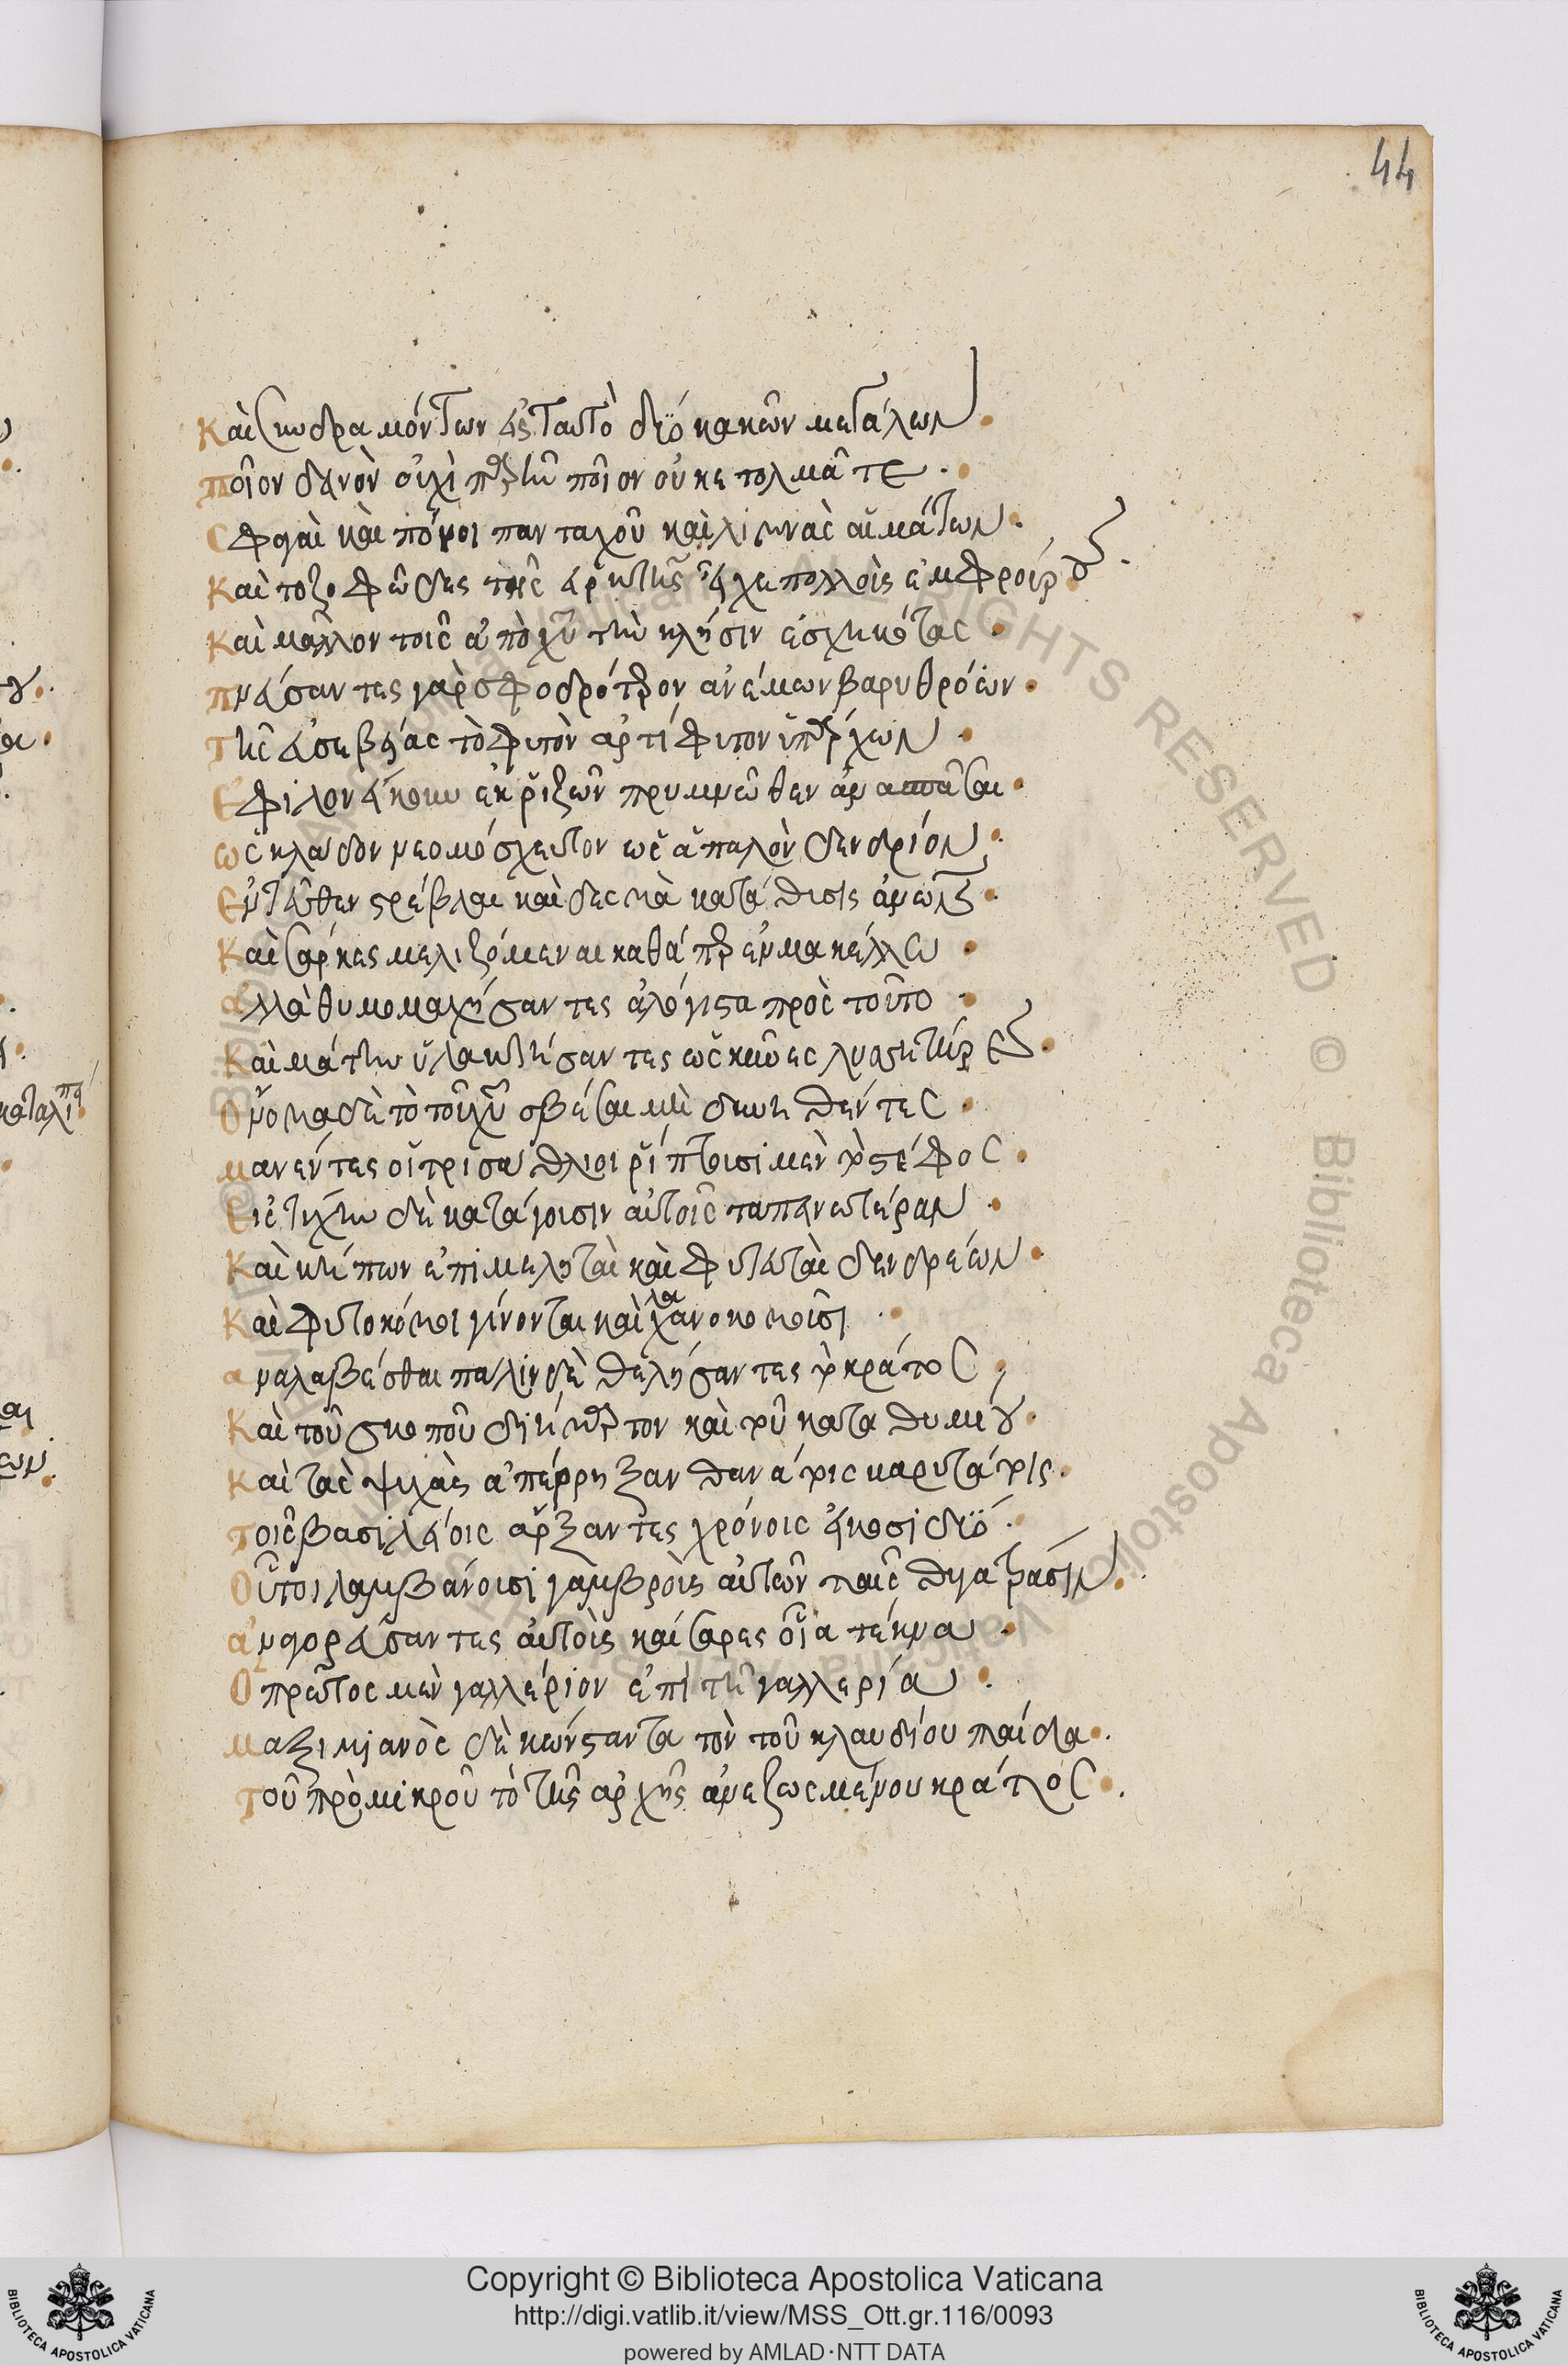 44
Καὶ συνδραμόντων εἰς ταυτὸ δύο κακῶν μεγάλων.
ποῖον δεινὸν οὐχὶ ποῖον οὐκ ἐτολμᾶτε.
Σφαγαὶ καὶ πόνοι πανταχοῦ καὶ λίμναὶ αἱμάτων.
Καὶ τὸ ζοφῶδες τῆς εἶχε πολλοὺς ἐμφρούρους.
Καὶ μᾶλλον τοὺς ἀπὸ χυ τὴν κλῆσιν ἐσχηκότας.
πνεύσαντες γὰρ σφοδρότερον ἀνέμων βαρυθρόων.
Τῆς εὐσεβείας τὸ φυτὸν ἀρτίφυτον ὑπάρχων.
Ἐφιλονείκουν ἐκ ῥιζῶν πρυμνῶθεν ἀνασπᾶσαι.
ὡς κλάδον νεομόσχευτον ὡς ἁπαλὸν δενδρίον.
Ἐντεῦθεν στρέβλαι καὶ δεσμὰ κατάθεσις
Καὶ σάρκες μελιζόμεναι καθάπερ ἐν μακέλλω.
ἀλλὰ θυμομαχήσαντες ἀλόγιστα πρὸς τοῦτο.
Καὶ μάτην ὑλακτήσαντες ὡς κύνες λυσσητῆρες.
Ὄνομα δὲ τὸ τοῦ χυ σβέσαι μὴ δυνηθέντες.
μανέντες οἱ τρισάθλιοι ῥίπτουσι μὲν τὸ στέφος.
Εἰς τύχην δὲ κατάγουσιν αὐτοὺς ταπεινωτέραν.
Καὶ κήπων ἐπιμεληταὶ καὶ φυτευταὶ δενδρέων.
Καὶ φυτοκόμοι γίνονται καὶ λαχανοκομοῦσι.
ἀναλαβέσθαι πάλιν δὲ θελήσαντες τὸ κράτος,
Καὶ τοῦ σκοποῦ διήμαρτον καὶ τοῦ καταθυμίου.
Καὶ τὰς ψυχὰς ἀπέρρηξαν θανάτοις
τοὺς βασιλείοις ἄρξαντες χρόνοις εἴκοσι δύο.
Οὗτοι λαμβάνουσι γαμβροὺς αὐτῶν παῖς θυγατράσιν.
ἀναγορεύσαντες αὐτοὺς καίσαρες οἷα τέκνα.
Ὁ πρῶτος μὲν γαλλέριον ἐπὶ τῆ γαλλερία.
μαξιμιανὸς δὲ κώνσταντα τὸν τοῦ κλαυδίου παῖδα.
Τοῦ πρὸ μικροῦ τὸ τῆς ἀρχῆς ἀνεζωσμένου κράτος.
Copyright © Biblioteca Apostolica Vaticana
http://digi.vatlib.it/view/MSS_Ott.gr.116/0093
powered by AMLAD·NTT DATA
BIBLIOTECA APOSTOLICA VATICANA
BIBLIOTECA APOSTOLICA VATICANA